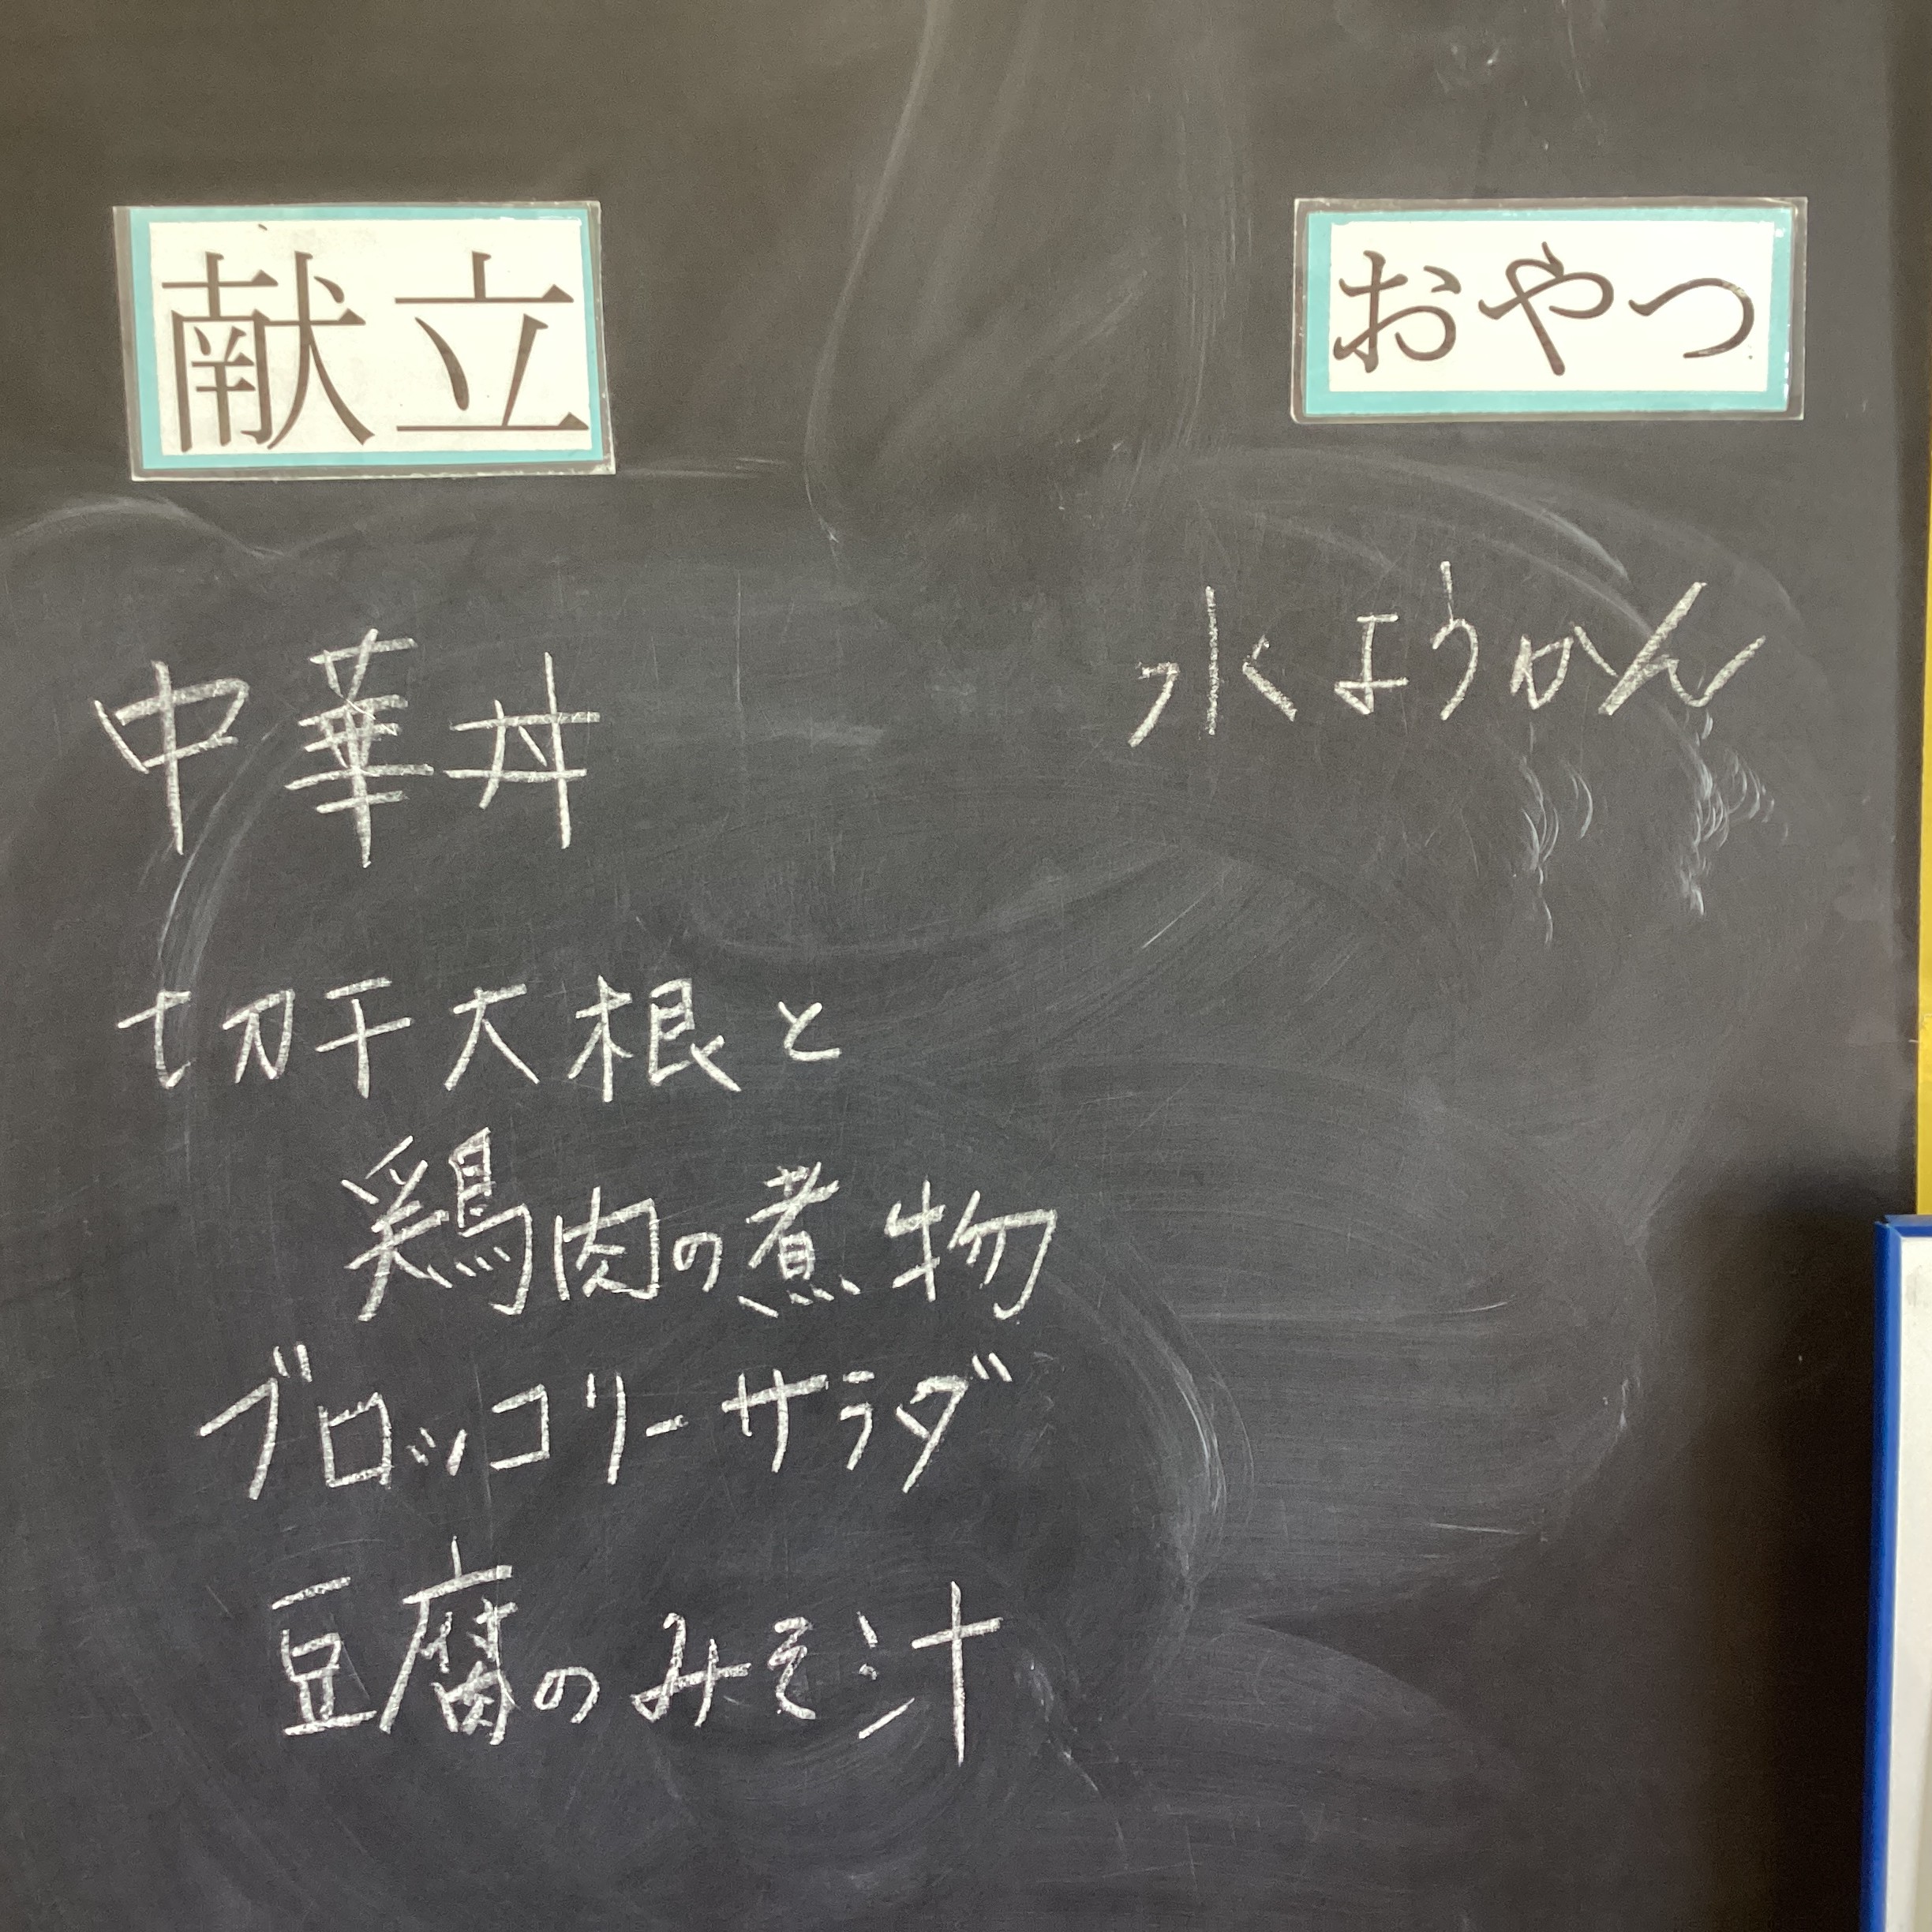 献立
中華丼
切干大根と
鶏肉の煮物
ブロッコリーサラダ
豆腐のみそ汁
おやつ
水ようかん